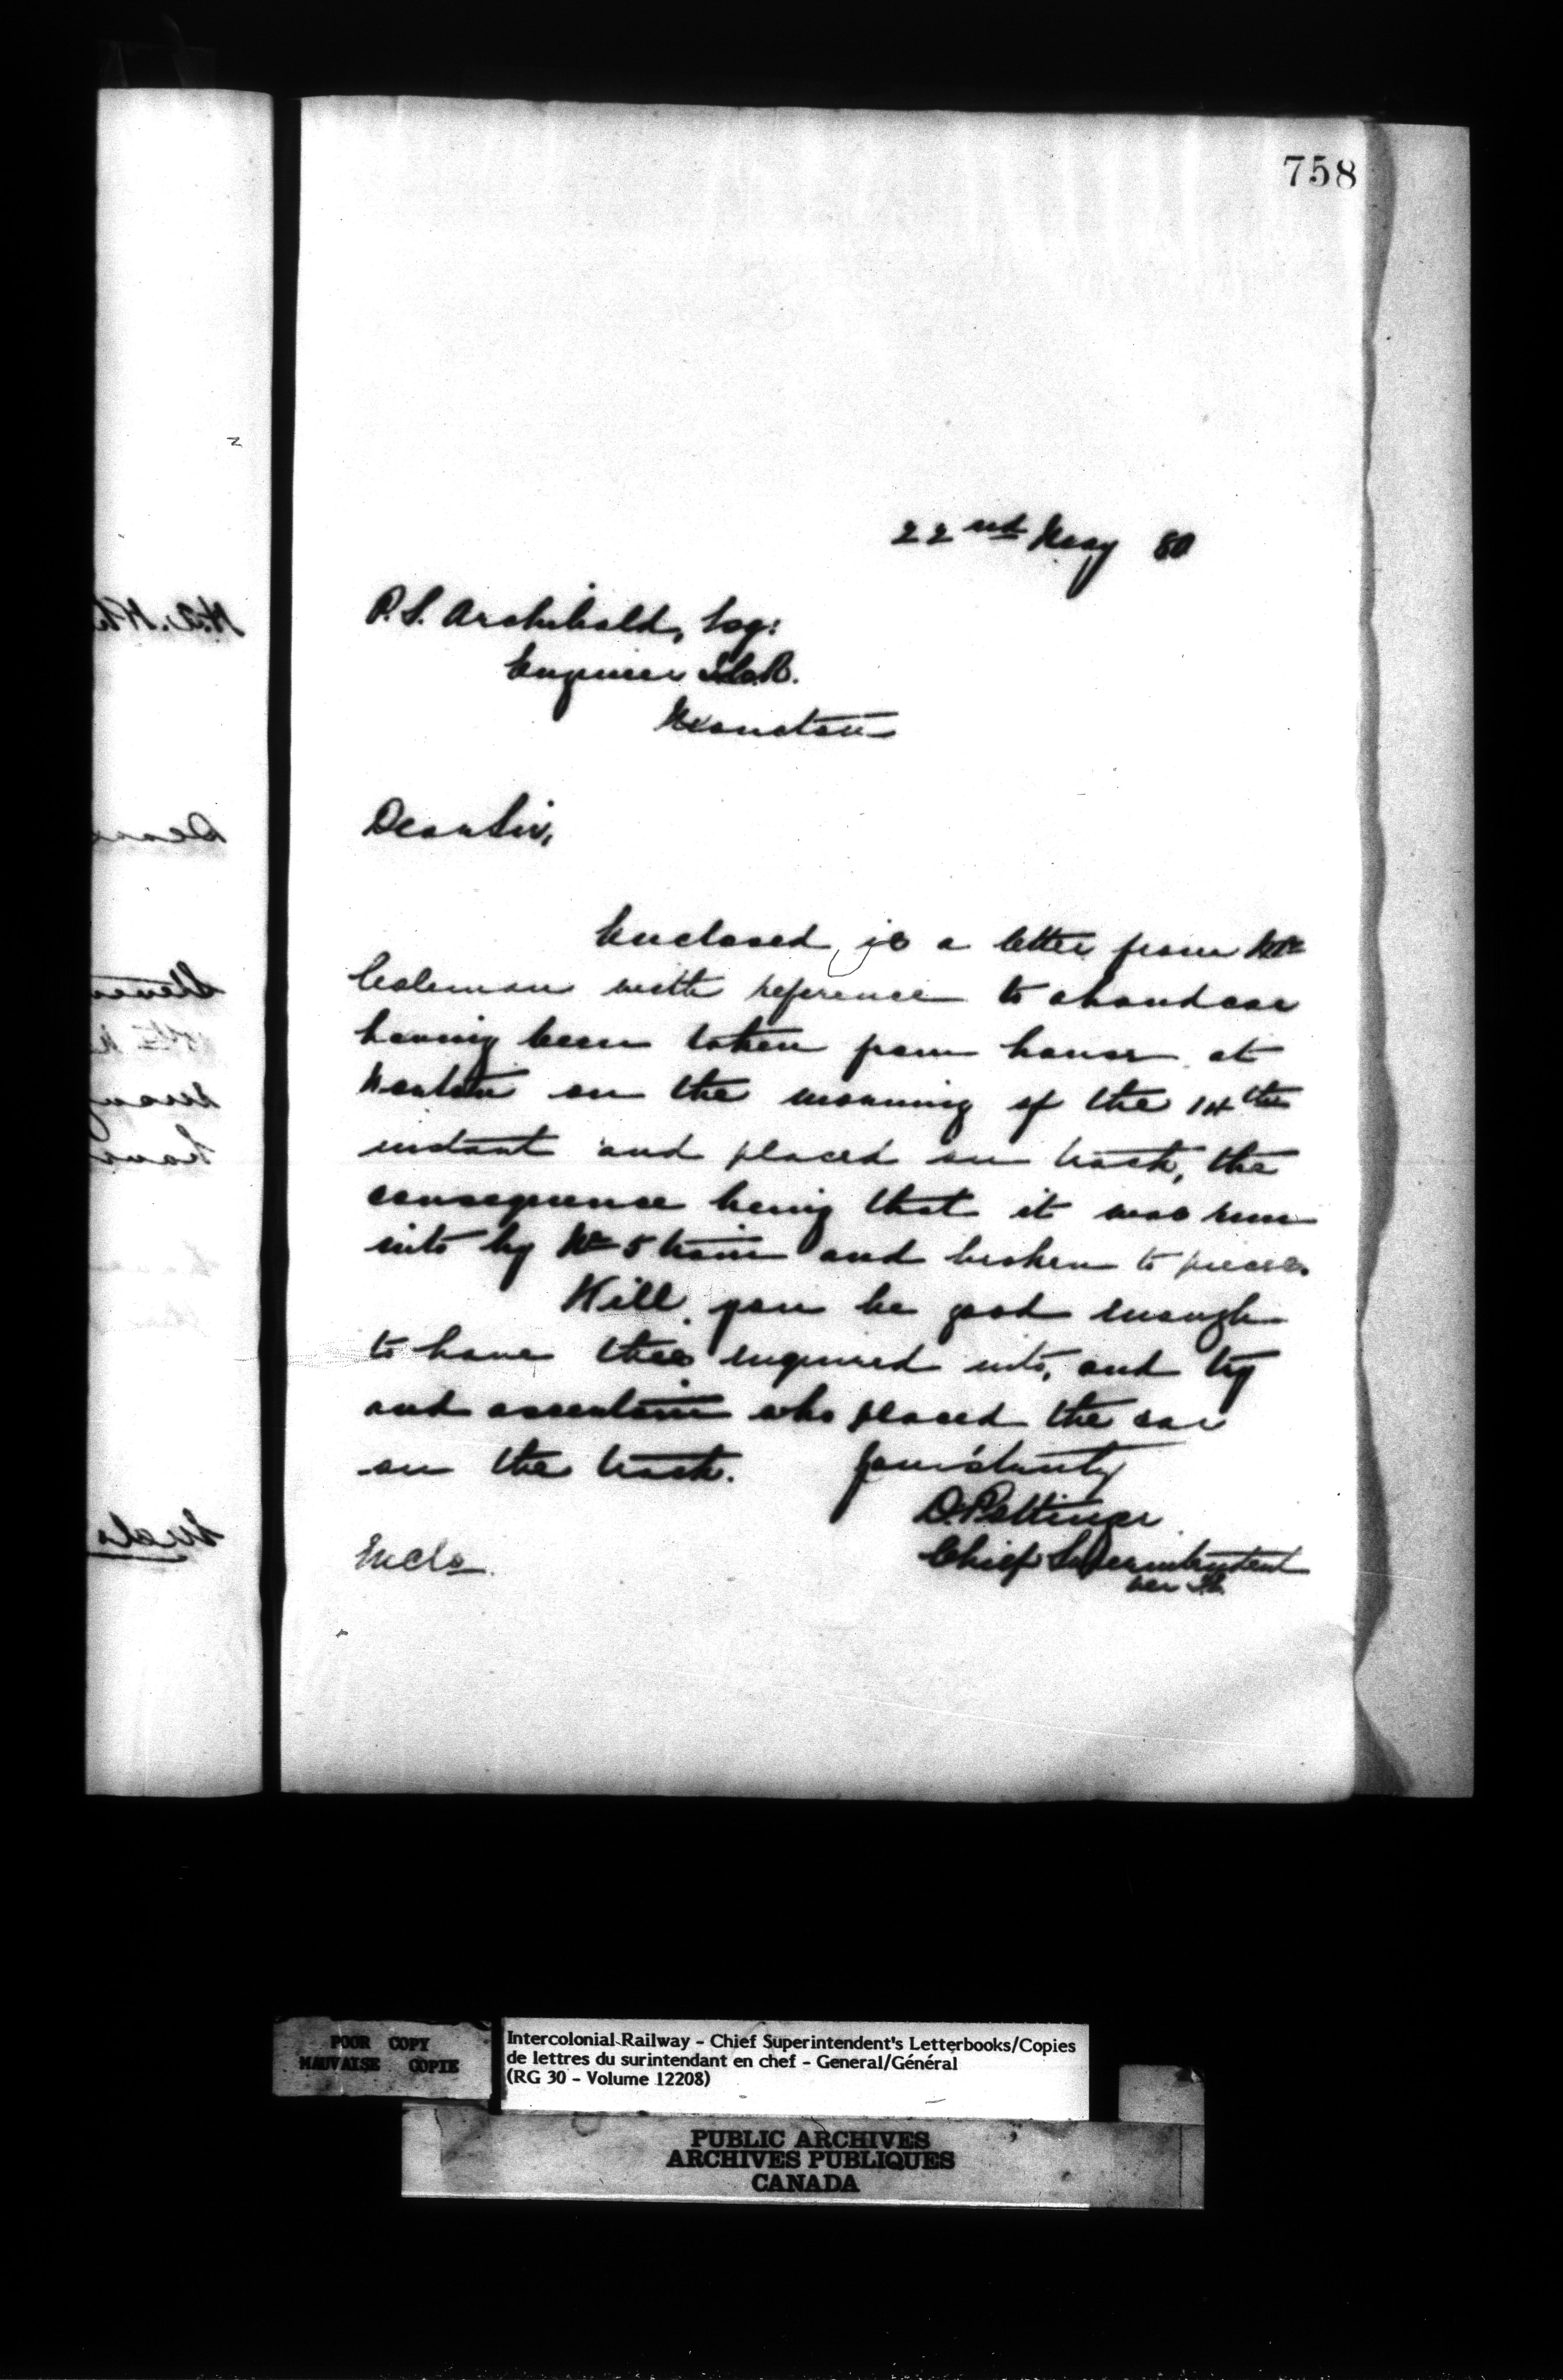 758
22nd May 80
P.S. Archibald, Esq:
Engineer I.C.R.
Moncton
Dear Sir,
Enclosed is a letter from Mr
Coleman with reference to a handcar
having been taken from house at
on the morning of the 14th
instant and placed on track, the
consequence being that it was run
into by No 5 train and broken to pieces.
Will you be good enough
to have this enquired into, and try
and ascertain who placed the car
on the track. Yours truly
D. Pottinger
Chief Superintendent
per
Encls.
POOR COPY
MAUVAISE COPIE
Intercolonial Railway - Chief Superintendent's Letterbooks/Copies
de lettres du surintendant en chef - General/Général
(RG 30 - Volume 12208)
PUBLIC ARCHIVES
ARCHIVES PUBLIQUES
CANADA